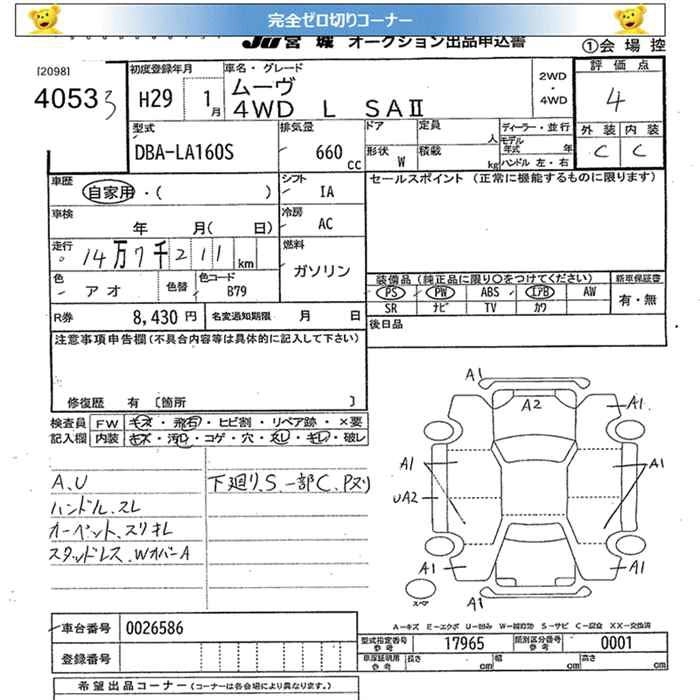 完全ゼロ切りコーナー
JU宮城 オークション出品申込書
①会場控
[2098]
4053 3
初度登録年月
H29 1月
車名・グレード
ムーヴ
4WD L SAⅡ
2WD・4WD
評価点
4
外装 内装
C C
型式
DBA-LA160S
排気量
660 cc
ドア 定員 人
形状 W 積載 kg
ディーラー・並行
モデル年式 年
ハンドル 左・右
車歴
自家用・( )
シフト
IA
セールスポイント (正常に機能するものに限ります)
車検
年 月( 日)
冷房
AC
走行
14万7千211km
燃料
ガソリン
色
アオ
色替
色コード
B79
装備品 (純正品に限り○をつけてください)
新車保証書
PS PW ABS エアB AW
有・無
SR ナビ TV カワ
R券 8,430円 名変通知期限 月 日
後日品
注意事項申告欄(不具合内容等は具体的に記入して下さい)
修復歴 有 〔箇所 〕
検査員 FW キズ・飛石・ヒビ割・リペア跡・×要
記入欄 内装 キズ・汚レ・コゲ・穴・スレ・キレ・破レ
A.U
ハンドル.スレ
オーペット.スリキレ
スタッドレス.WオバーA
下廻り.S.一部C.Pヌリ
A1
A2
A1
A1
A1
UA2
A1
A1
A1
スペア
A-キズ E-エクボ U-凹み W-補修跡 S-サビ C-腐食 XX-交換済
車台番号 0026586
型式指定番号 参考 17965 類別区分番号 参考 0001
登録番号
車庫証明用 参考 長さ cm 幅 cm 高さ cm
希望出品コーナー(コーナーは各会場により異なります。)